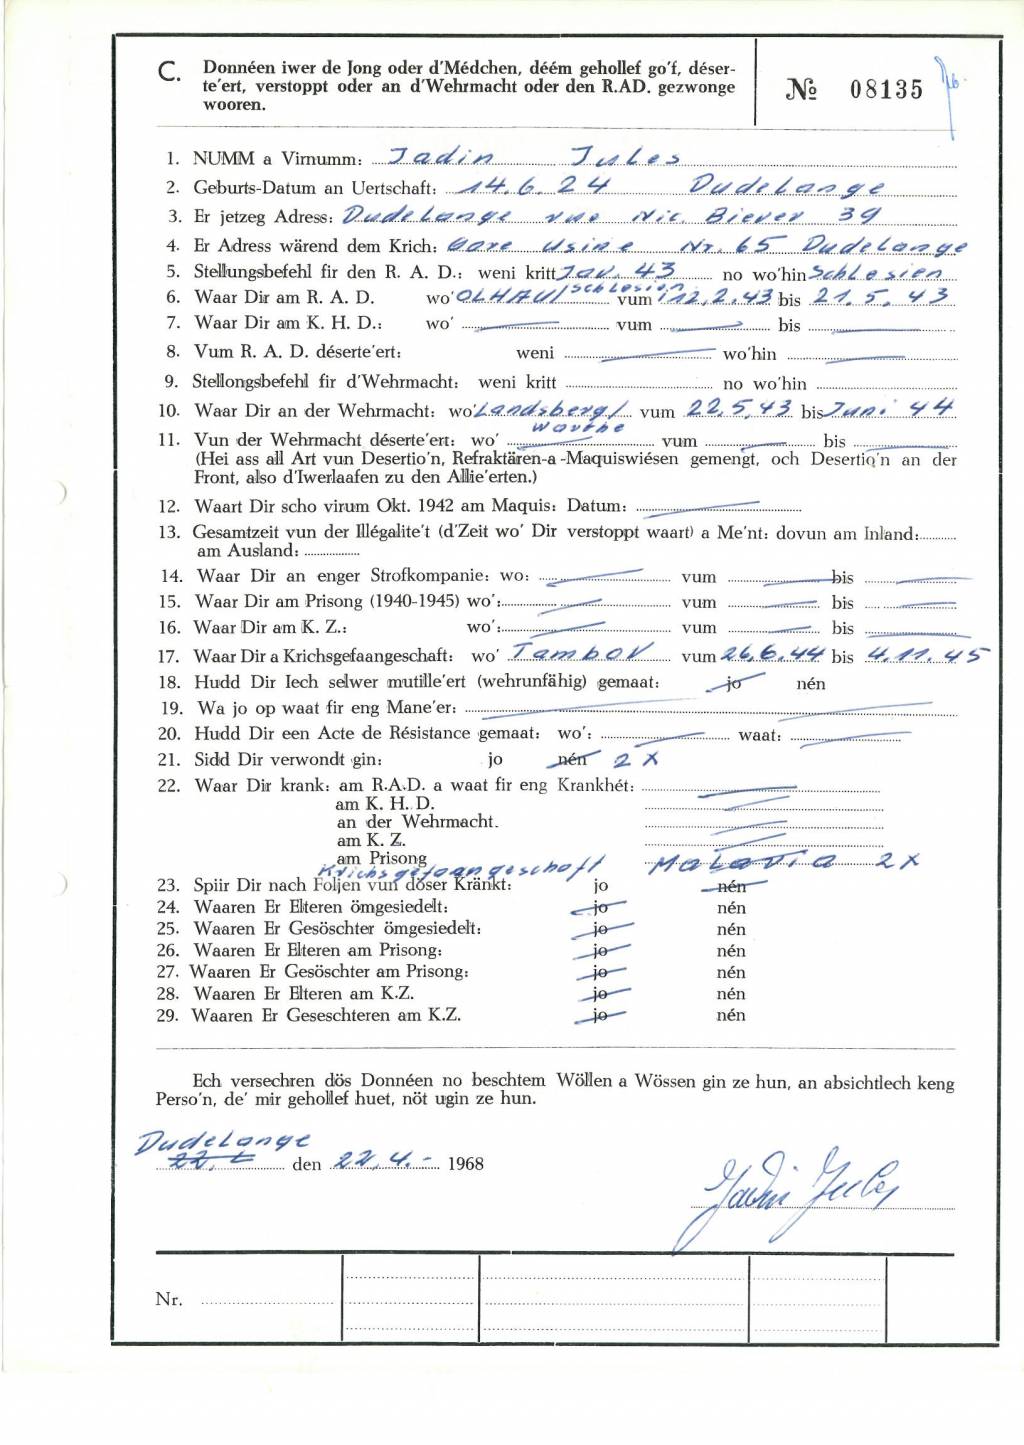 C. Donnéen iwer de Jong oder d'Médchen, déém gehollef go'f, déser-
te'ert, verstoppt oder an d'Wehrmacht oder den R.AD. gezwonge
wooren.
№ 08135
1. NUMM a Virnumm: Jadin Jules
2. Geburts-Datum an Uertschaft: 14.6.24 Dudelange
3. Er jetzeg Adress: Dudelange rue Nic. Biever 39
4. Er Adress wärend dem Krich: Gare Usine Nr. 65 Dudelange
5. Stellungsbefehl fir den R. A. D.: weni kritt Jav. 43 no wo'hin Schlesien
6. Waar Dir am R. A. D. wo' OLHAU/Schlesien vum 12.2.43 bis 21.5.43
7. Waar Dir am K. H. D.: wo' vum bis
8. Vum R. A. D. déserte'ert: weni wo'hin
9. Stellongsbefehl fir d'Wehrmacht: weni kritt no wo'hin
10. Waar Dir an der Wehrmacht: wo' Landsberg/ vum 22.5.43 bis Juni 44
Warthe
11. Vun der Wehrmacht déserte'ert: wo' vum bis
(Hei ass all Art vun Desertio'n, Refraktären-a-Maquiswiésen gemengt, och Desertio'n an der
Front, also d'Iwerlaafen zu den Allie'erten.)
12. Waart Dir scho virum Okt. 1942 am Maquis: Datum:
13. Gesamtzeit vun der Illégalite't (d'Zeit wo' Dir verstoppt waart) a Me'nt: dovun am Inland:
am Ausland:
14. Waar Dir an enger Strofkompanie: wo: vum bis
15. Waar Dir am Prisong (1940-1945) wo': vum bis
16. Waar Dir am K. Z.: wo': vum bis
17. Waar Dir a Krichsgefaangeschaft: wo' Tambov vum 26.6.44 bis 4.11.45
18. Hudd Dir Iech selwer mutille'ert (wehrunfähig) gemaat: jo nén
19. Wa jo op waat fir eng Mane'er:
20. Hudd Dir een Acte de Résistance gemaat: wo': waat:
21. Sidd Dir verwondt gin: jo nén 2 X
22. Waar Dir krank: am R.A.D. a waat fir eng Krankhét:
am K. H. D.
an der Wehrmacht.
am K. Z.
am Prisong
Krichsgefaangeschaft Malaria 2 X
23. Spiir Dir nach Foljen vun döser Kränkt: jo nén
24. Waaren Er Elteren ömgesiedelt: jo nén
25. Waaren Er Gesöschter ömgesiedelt: jo nén
26. Waaren Er Elteren am Prisong: jo nén
27. Waaren Er Gesöschter am Prisong: jo nén
28. Waaren Er Elteren am K.Z. jo nén
29. Waaren Er Geseschteren am K.Z. jo nén
Ech versechren dös Donnéen no beschtem Wöllen a Wössen gin ze hun, an absichtlech keng
Perso'n, de' mir gehollef huet, nöt ugin ze hun.
Dudelange
den 22.4.- 1968
Jadin Jules
Nr.